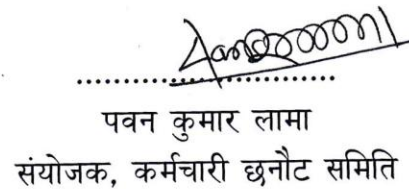 ....................................
पवन कुमार लामा
संयोजक, कर्मचारी छनौट समिति